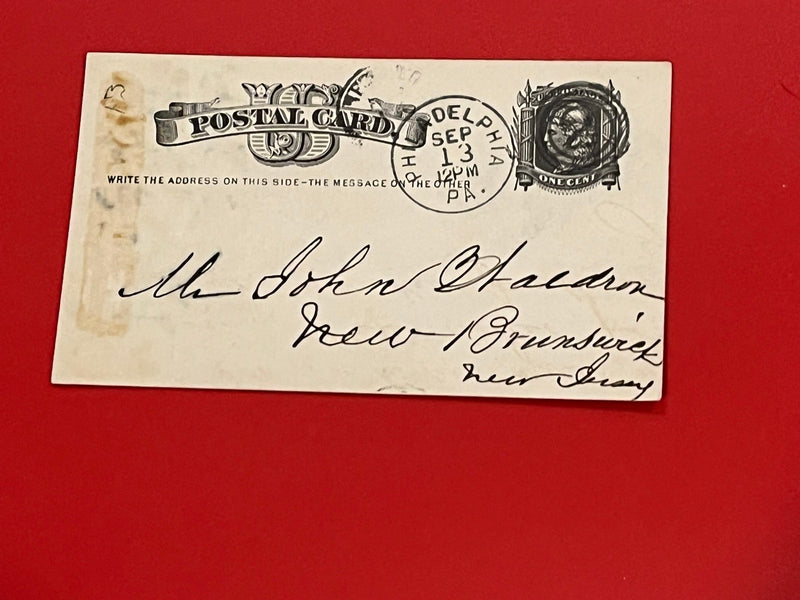 U.S. POSTAGE
US
POSTAL CARD.
PHILADELPHIA
SEP
13
12PM
PA.
ONE CENT
WRITE THE ADDRESS ON THIS SIDE-THE MESSAGE ON THE OTHER
Mr John Waldron
New Brunswick
New Jersey